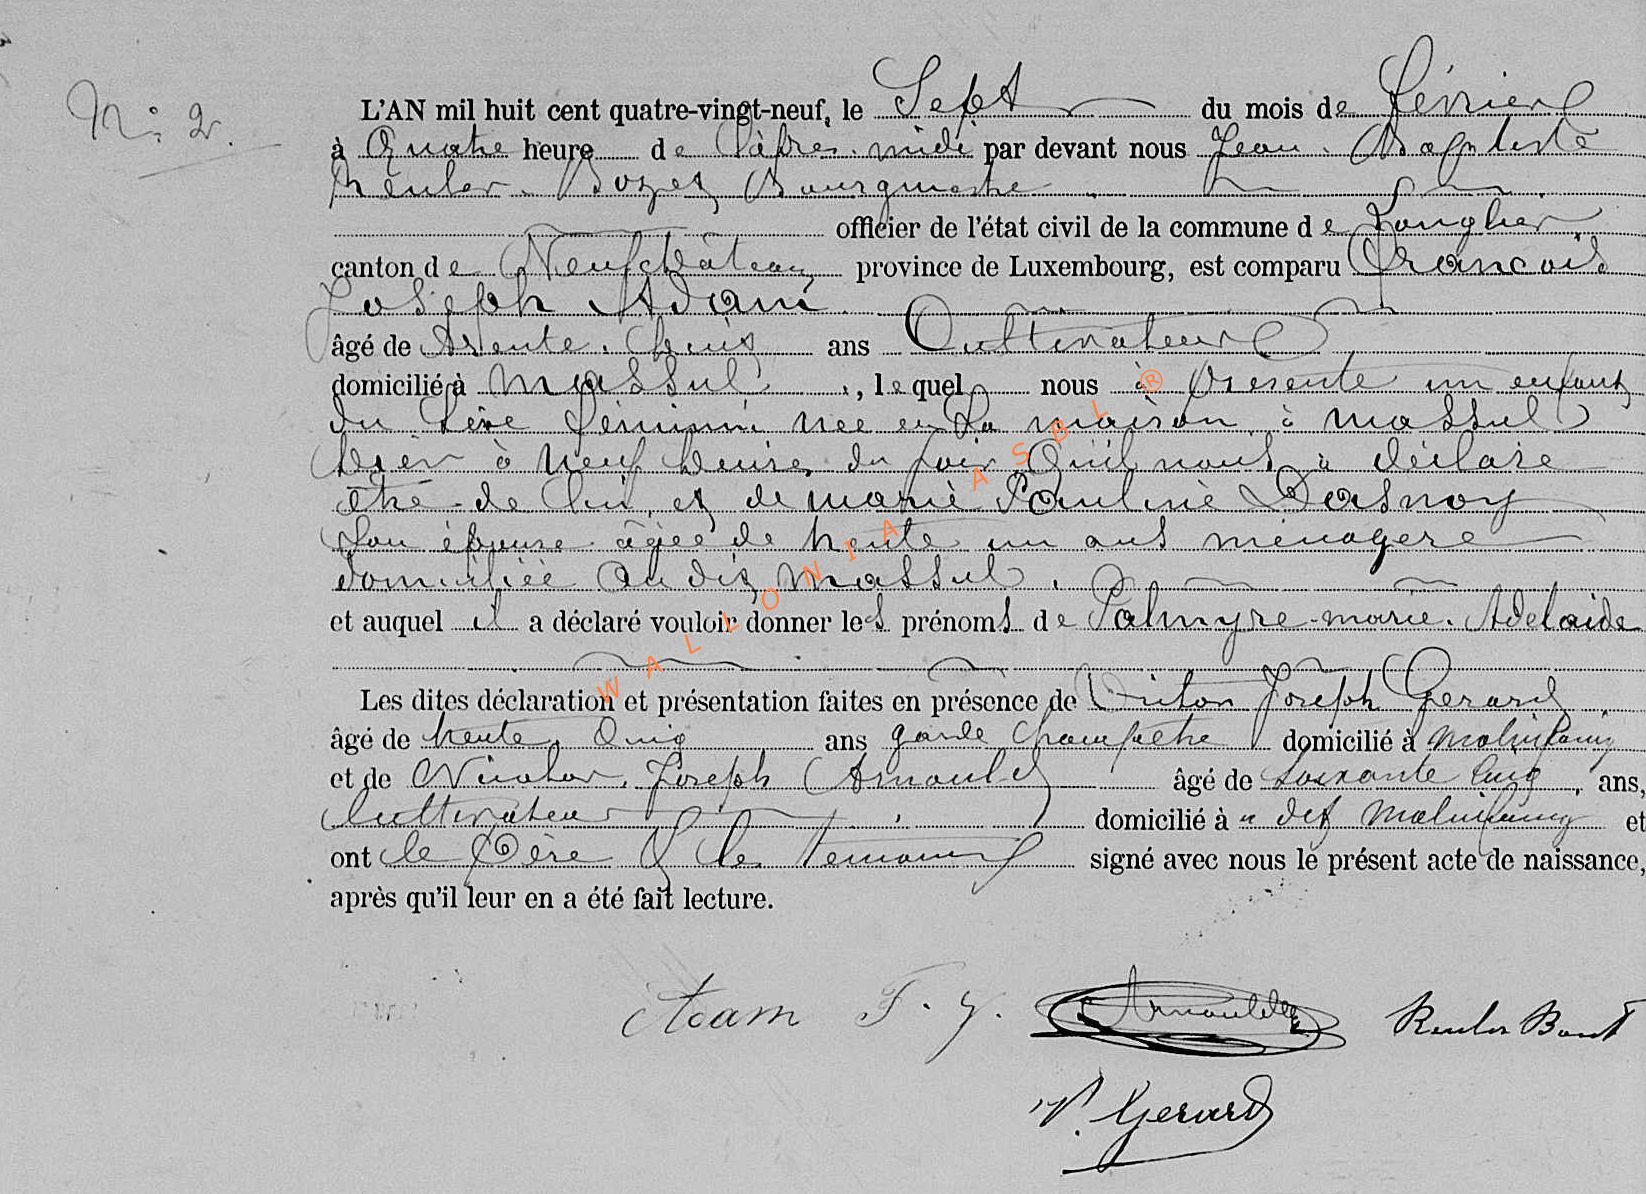 N° 2.
L'AN mil huit cent quatre-vingt-neuf, le Sept du mois de février
à Quatre heure de l'après-midi par devant nous Jean Baptiste
Reuler Bourgmestre
officier de l'état civil de la commune de Longlier
canton de Neufchâteau province de Luxembourg, est comparu François
Joseph Adam
âgé de trente ans Cultivateur
domicilié à Massul, lequel nous à présenté un enfant
du sexe féminin née en sa maison à Massul
hier à neuf heures du soir Qu'il nous à déclaré
être de lui et de Marie Pauline Dasnoy
son épouse âgée de trente un ans ménagère
domiciliée au dit Massul.
et auquel il a déclaré vouloir donner les prénoms de Palmyre Marie Adelaïde
Les dites déclaration et présentation faites en présence de Victor Joseph Gerard
âgé de trente cinq ans garde champêtre domicilié à Molinfaing
et de Nicolas Joseph Arnould âgé de soixante cinq, ans,
Cultivateur domicilié à dit Molinfaing et
ont le Père & les témoins signé avec nous le présent acte de naissance,
après qu'il leur en a été fait lecture.
Adam F. J. Arnould Reuler Bapt
V. Gerard
WALLONIA ASBL ®